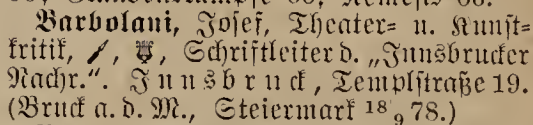 Barbolani, Josef, Theater= u. Kunst=
kritik, Schriftleiter d. „Innsbrucker
Nachr.“. Innsbruck, Templstraße 19.
(Bruck a. d. M., Steiermark 18 9 78.)